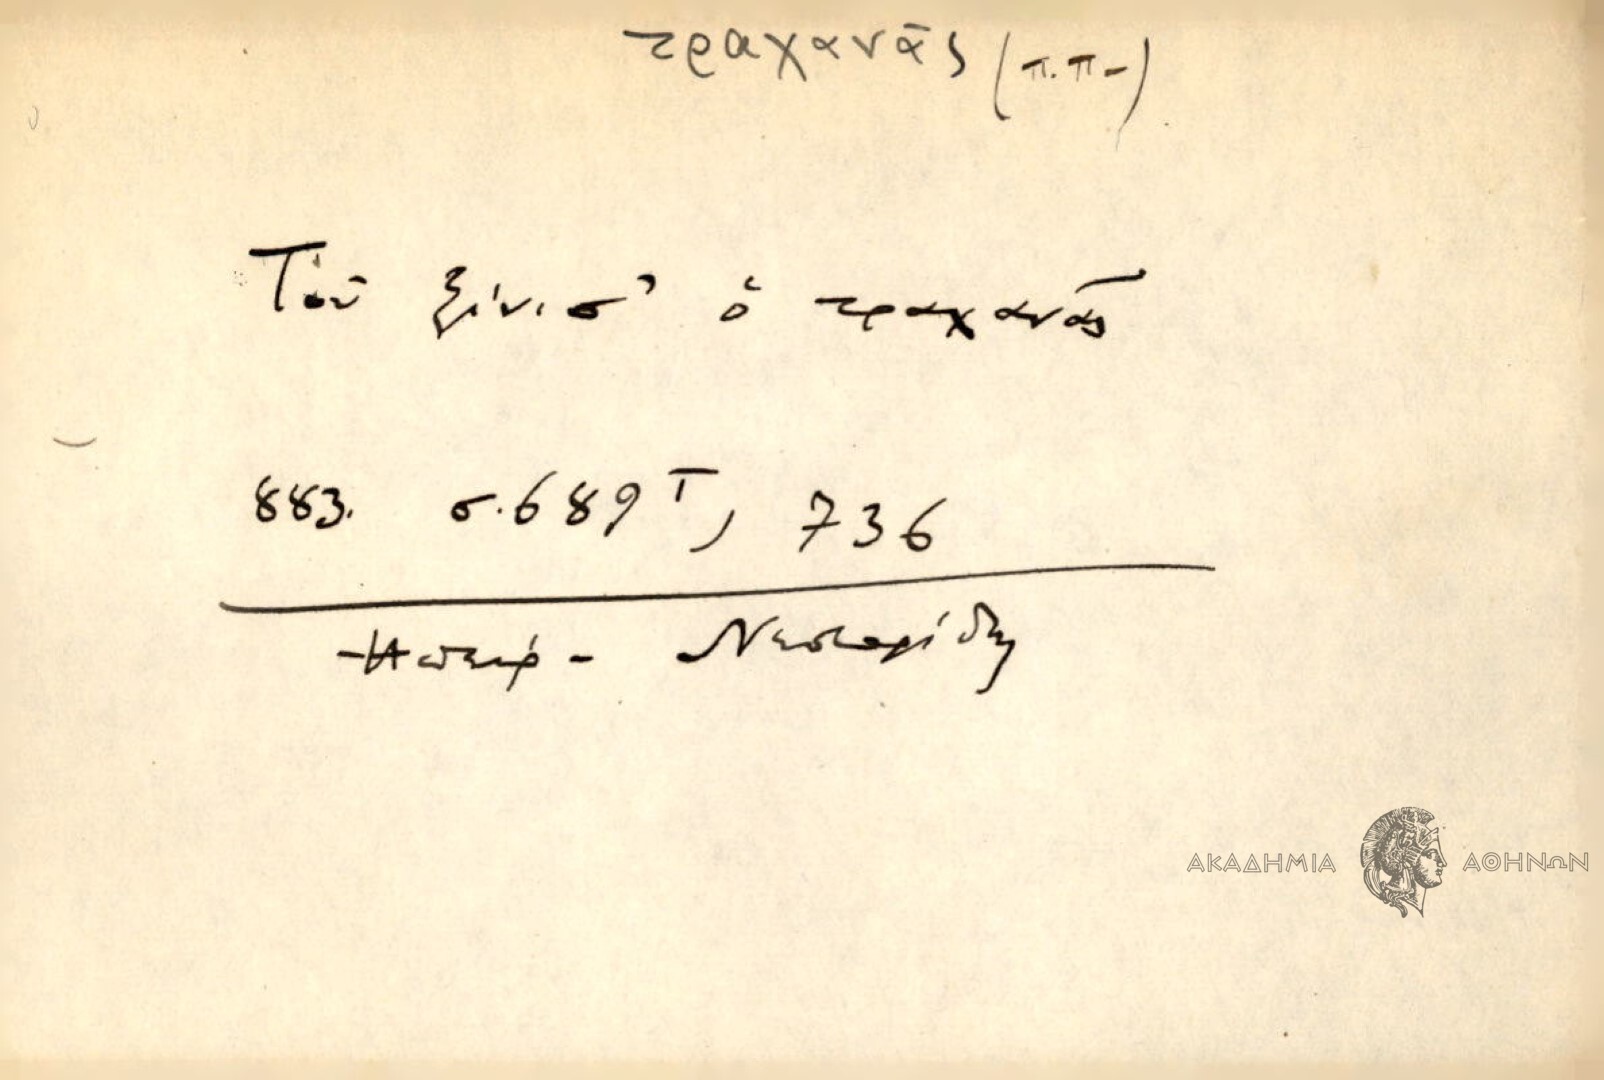 τραχανᾶς (π.π-)
Τοῦ ξίνισ' ὁ τραχανᾶς
883. σ.689 Τ, 736
Ἤπειρ- Νεστορίδης
ΑΚΑΔΗΜΙΑ ΑΘΗΝΩΝ